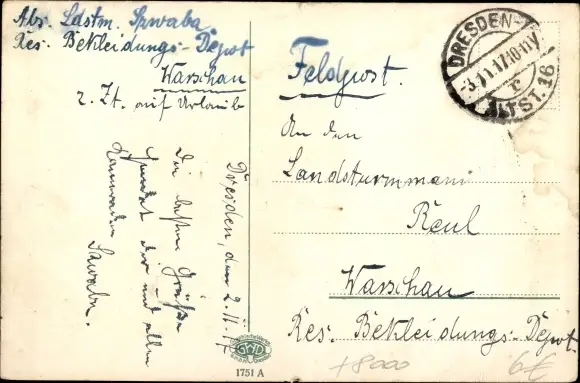 Abs. Ldstm. Sawaba
Res. Bekleidungs-Depot
Warschau
z. Zt. auf Urlaub
Dresden, den 2.11.17
Die besten Grüße
sendet dir und allen
Kameraden
Sawaba.
Feldpost.
An den
Landsturmmann
Reul
Warschau
Res. Bekleidungs-Depot.
DRESDEN-ALTST. 16
-3.11.17.10-11V
r
1751 A
+8000
6€